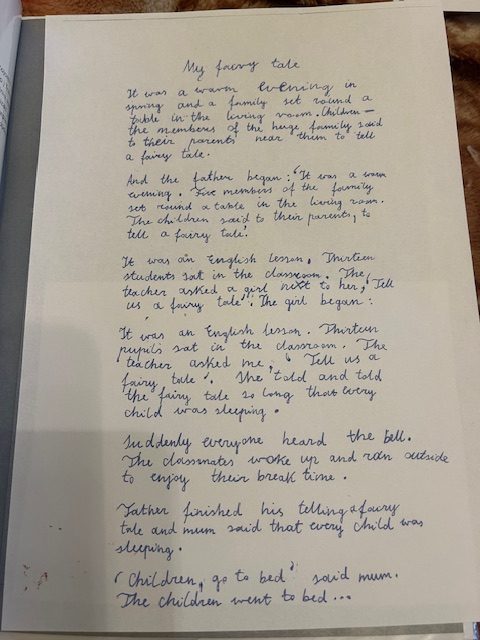 My fairy tale
It was a warm evening in
spring and a family set round a
table in the living room. Children –
the members of the huge family said
to their parents near them to tell
a fairy tale.
And the father began: "It was a warm
evening. Five members of the family
set round a table in the living room.
The children said to their parents, to
tell a fairy tale'.
It was an English lesson. Thirteen
students sat in the classroom. The
teacher asked a girl next to her, 'Tell
us a fairy tale'. The girl began:
It was an English lesson. Thirteen
pupils sat in the classroom. The
teacher asked me, 'Tell us a
fairy tale'. She told and told
the fairy tale so long that every
child was sleeping.
Suddenly everyone heard the bell.
The classmates woke up and ran outside
to enjoy their break time.
Father finished his telling a fairy
tale and mum said that every child was
sleeping.
'Children, go to bed' said mum.
The children went to bed...